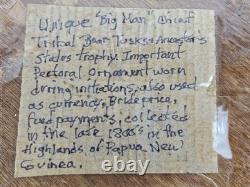 Unique "Big Man" Chief
Tribal Boar Tusks Ancestor's
Status Trophy. Important
Pectoral Ornament worn
during initiations, also used
as currency, Brideprice,
feud payments, collected
in the late 1800's in the
Highlands of Papua New
Guinea.